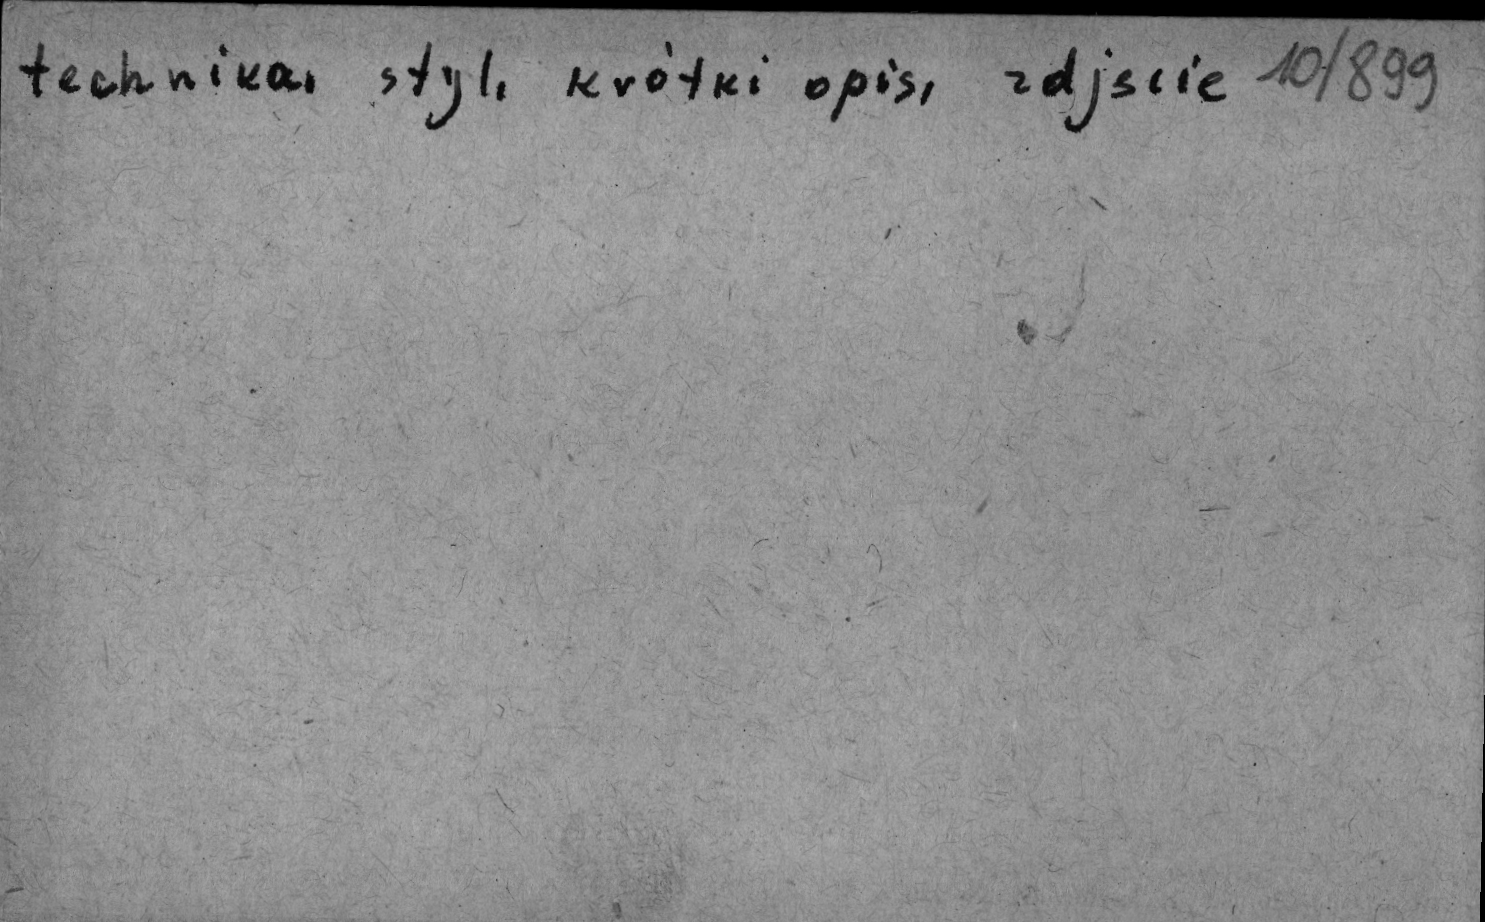 technika, styl, krótki opis, zdjscie 10/899